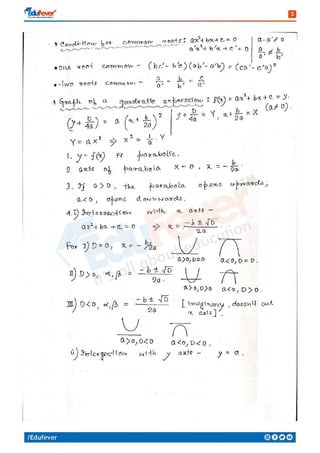 Edufever
3
* Condition for common roots: ax²+bx+c = 0
a'x²+b'x+c' = 0
a·a' ≠ 0
a/a' ≠ b/b'
* one root common - (bc'-b'c)(ab'-a'b) = (ca'-c'a)²
* two roots common - a/a' = b/b' = c/c'
* Graph of a quadratic expression: f(x) = ax²+bx+c = y.
(a≠0).
(y + D/4a) = a (x + b/2a)²
y + D/4a = Y, x + b/2a = X
Y = aX² ⇒ X² = 1/a · Y
1. y = f(x) is parabolic.
2. axis of parabola X = 0, x = -b/2a
3. If a>0, the parabola opens upwards;
a<0, opens downwards.
4. i) Intersection with x axis -
ax²+bx+c = 0 ⇒ x = (-b±√D)/2a
For I) D=0, x = -b/2a
a>0, D=0
a<0, D=0.
II) D>0, α,β = (-b±√D)/2a
a>0, D>0
a<0, D>0.
III) D<0, α,β = (-b±√D)/2a [Imaginary, doesn't cut
x axis].
a>0, D<0
a<0, D<0.
ii) Intersection with y axis - y = c.
/Edufever